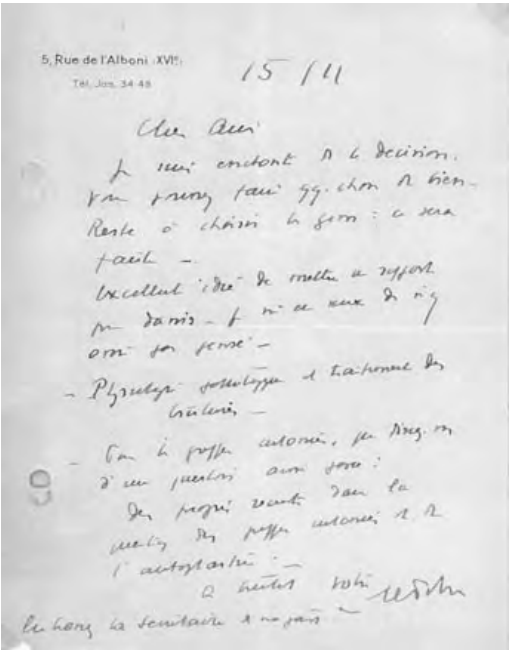 5, Rue de l'Alboni (XVIe)
Tél. Jas. 34-48
15 / 11
Cher Ami
Je suis enchanté de la décision.
Vous pouvez faire qq. chose de bien.
Reste à choisir les gens : ce sera
facile –
Excellente idée de mettre ce rapport
par Janvis – Je m'en veux de n'y
avoir pas pensé –
– Physiologie pathologique et traitement des
brûlures –
– Pour les greffes cutanées,
question
Des progrès récents dans la
question des greffes cutanées et de
l'autoplastie –
A bientôt votre
la secrétaire